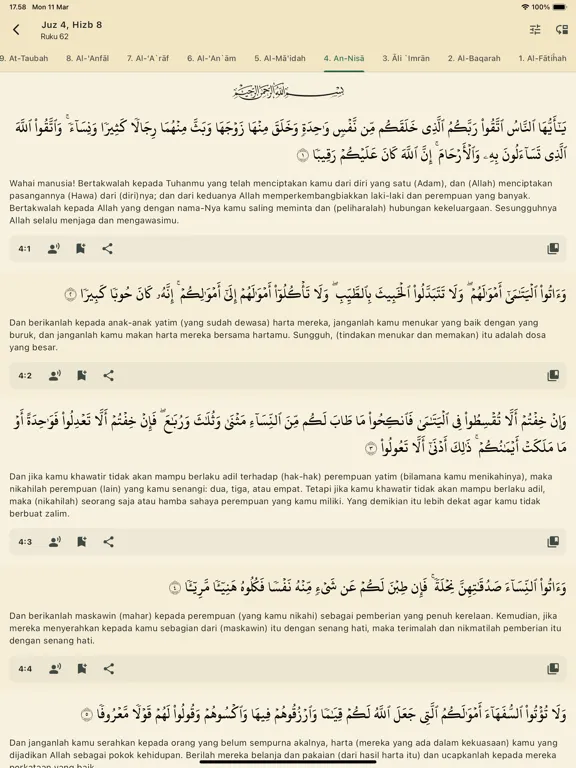 17.58 Mon 11 Mar
100%
Juz 4, Hizb 8
Ruku 62
9. At-Taubah 8. Al-'Anfāl 7. Al-'A`rāf 6. Al-'An`ām 5. Al-Mā'idah 4. An-Nisā 3. Āli `Imrān 2. Al-Baqarah 1. Al-Fātiĥah
بِسْمِ اللَّهِ الرَّحْمَٰنِ الرَّحِيمِ
يَـٰٓأَيُّهَا ٱلنَّاسُ ٱتَّقُوا۟ رَبَّكُمُ ٱلَّذِى خَلَقَكُم مِّن نَّفْسٍ وَٰحِدَةٍ وَخَلَقَ مِنْهَا زَوْجَهَا وَبَثَّ مِنْهُمَا رِجَالًا كَثِيرًا وَنِسَآءً ۚ وَٱتَّقُوا۟ ٱللَّهَ
ٱلَّذِى تَسَآءَلُونَ بِهِۦ وَٱلْأَرْحَامَ ۚ إِنَّ ٱللَّهَ كَانَ عَلَيْكُمْ رَقِيبًا ١
Wahai manusia! Bertakwalah kepada Tuhanmu yang telah menciptakan kamu dari diri yang satu (Adam), dan (Allah) menciptakan
pasangannya (Hawa) dari (diri)nya; dan dari keduanya Allah memperkembangbiakkan laki-laki dan perempuan yang banyak.
Bertakwalah kepada Allah yang dengan nama-Nya kamu saling meminta dan (peliharalah) hubungan kekeluargaan. Sesungguhnya
Allah selalu menjaga dan mengawasimu.
4:1
وَءَاتُوا۟ ٱلْيَتَـٰمَىٰٓ أَمْوَٰلَهُمْ ۖ وَلَا تَتَبَدَّلُوا۟ ٱلْخَبِيثَ بِٱلطَّيِّبِ ۖ وَلَا تَأْكُلُوٓا۟ أَمْوَٰلَهُمْ إِلَىٰٓ أَمْوَٰلِكُمْ ۚ إِنَّهُۥ كَانَ حُوبًا كَبِيرًا ٢
Dan berikanlah kepada anak-anak yatim (yang sudah dewasa) harta mereka, janganlah kamu menukar yang baik dengan yang
buruk, dan janganlah kamu makan harta mereka bersama hartamu. Sungguh, (tindakan menukar dan memakan) itu adalah dosa
yang besar.
4:2
وَإِنْ خِفْتُمْ أَلَّا تُقْسِطُوا۟ فِى ٱلْيَتَـٰمَىٰ فَٱنكِحُوا۟ مَا طَابَ لَكُم مِّنَ ٱلنِّسَآءِ مَثْنَىٰ وَثُلَـٰثَ وَرُبَـٰعَ ۖ فَإِنْ خِفْتُمْ أَلَّا تَعْدِلُوا۟ فَوَٰحِدَةً أَوْ
مَا مَلَكَتْ أَيْمَـٰنُكُمْ ۚ ذَٰلِكَ أَدْنَىٰٓ أَلَّا تَعُولُوا۟ ٣
Dan jika kamu khawatir tidak akan mampu berlaku adil terhadap (hak-hak) perempuan yatim (bilamana kamu menikahinya), maka
nikahilah perempuan (lain) yang kamu senangi: dua, tiga, atau empat. Tetapi jika kamu khawatir tidak akan mampu berlaku adil,
maka (nikahilah) seorang saja atau hamba sahaya perempuan yang kamu miliki. Yang demikian itu lebih dekat agar kamu tidak
berbuat zalim.
4:3
وَءَاتُوا۟ ٱلنِّسَآءَ صَدُقَـٰتِهِنَّ نِحْلَةً ۚ فَإِن طِبْنَ لَكُمْ عَن شَىْءٍ مِّنْهُ نَفْسًا فَكُلُوهُ هَنِيٓـًٔا مَّرِيٓـًٔا ٤
Dan berikanlah maskawin (mahar) kepada perempuan (yang kamu nikahi) sebagai pemberian yang penuh kerelaan. Kemudian, jika
mereka menyerahkan kepada kamu sebagian dari (maskawin) itu dengan senang hati, maka terimalah dan nikmatilah pemberian itu
dengan senang hati.
4:4
وَلَا تُؤْتُوا۟ ٱلسُّفَهَآءَ أَمْوَٰلَكُمُ ٱلَّتِى جَعَلَ ٱللَّهُ لَكُمْ قِيَـٰمًا وَٱرْزُقُوهُمْ فِيهَا وَٱكْسُوهُمْ وَقُولُوا۟ لَهُمْ قَوْلًا مَّعْرُوفًا ٥
Dan janganlah kamu serahkan kepada orang yang belum sempurna akalnya, harta (mereka yang ada dalam kekuasaan) kamu yang
dijadikan Allah sebagai pokok kehidupan. Berilah mereka belanja dan pakaian (dari hasil harta itu) dan ucapkanlah kepada mereka
perkataan yang baik.